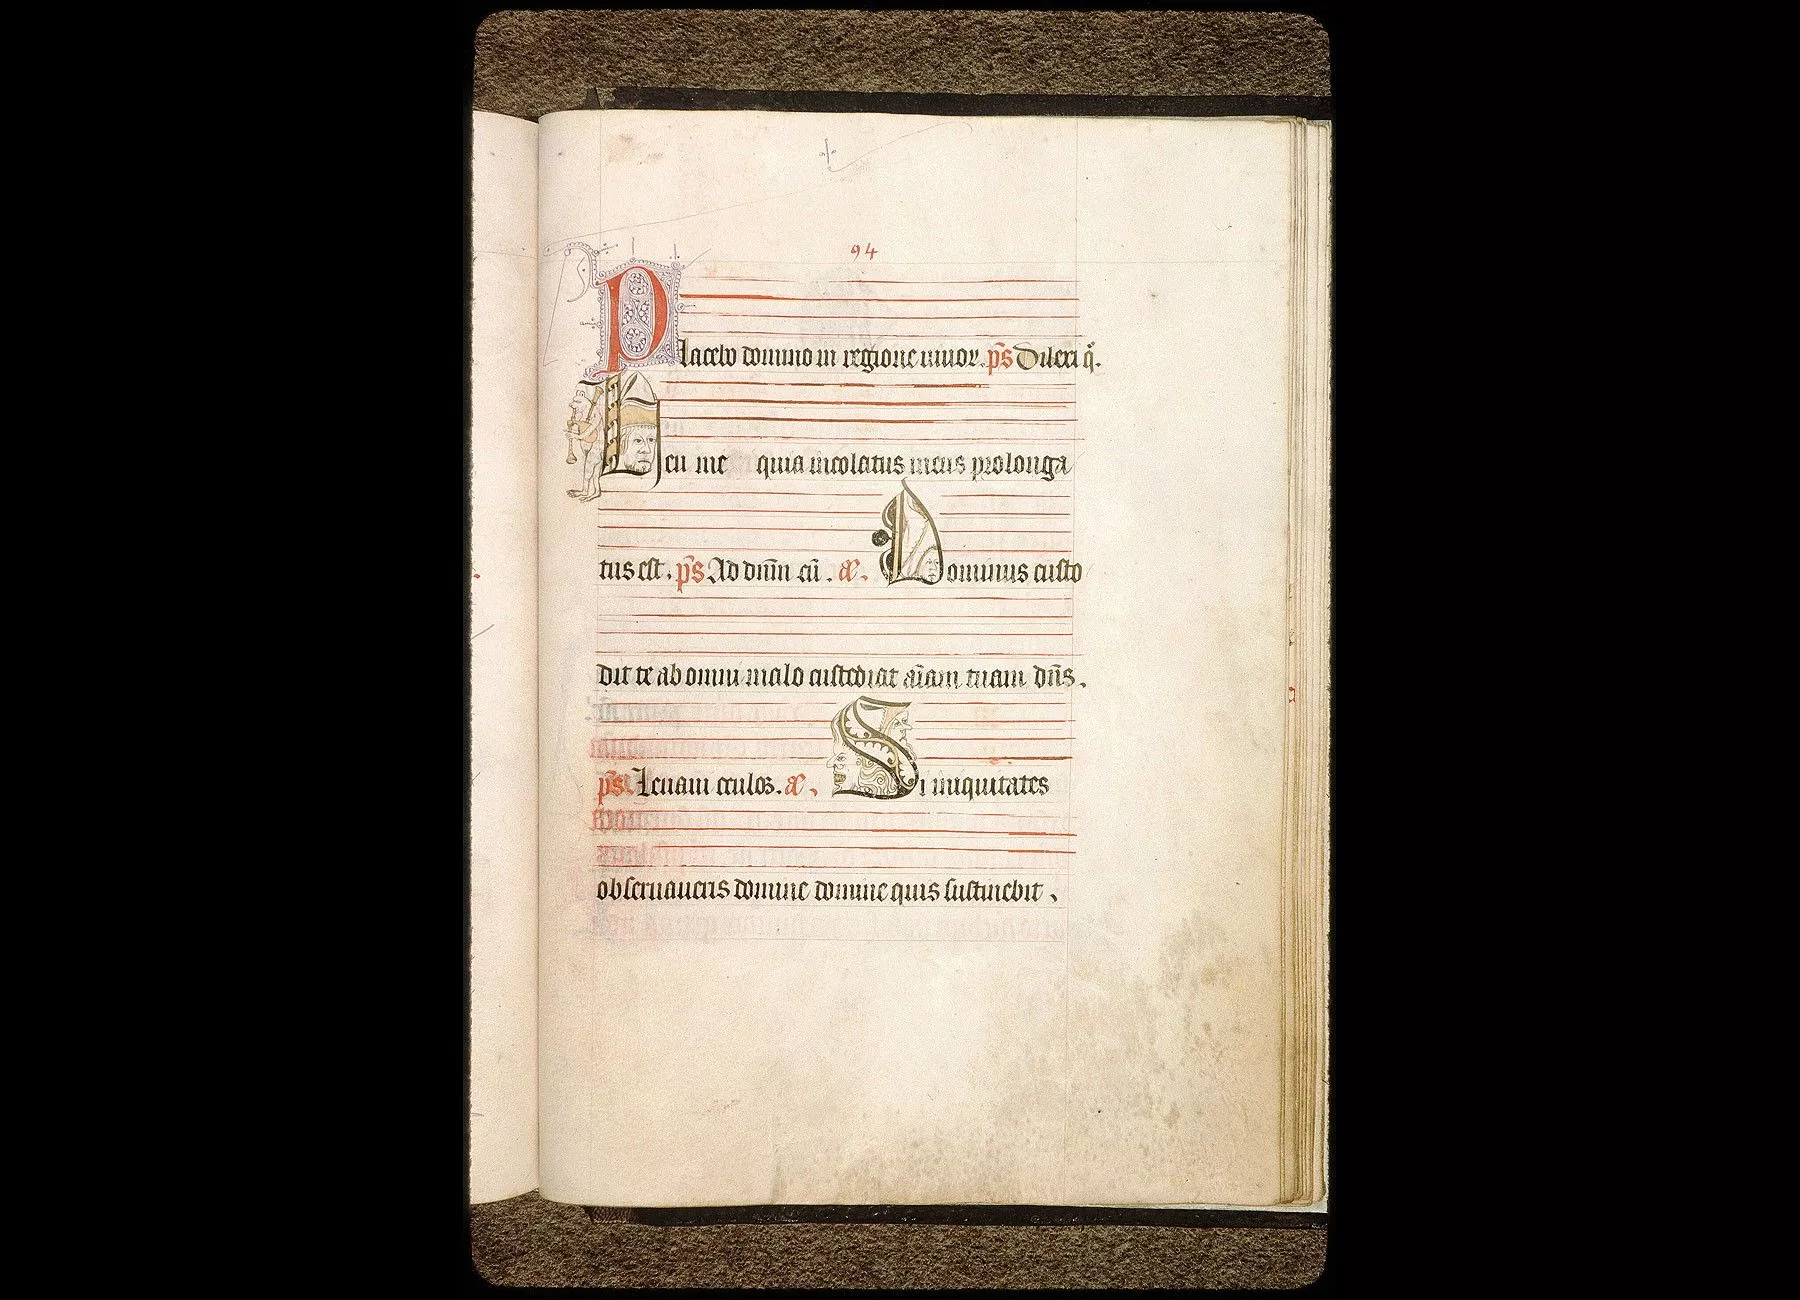 94
Placebo domino in regione vivor. p̄s Dilexi q̊.
Heu me quia incolatus meus prolonga
tus est. p̄s Ad dn̄m cū. æ. Dominus custo
dit te ab omni malo custodiat aīam tuam dn̄s.
p̄s Levam oculos. æ. Si iniquitates
observaveris domine domine quis sustinebit.